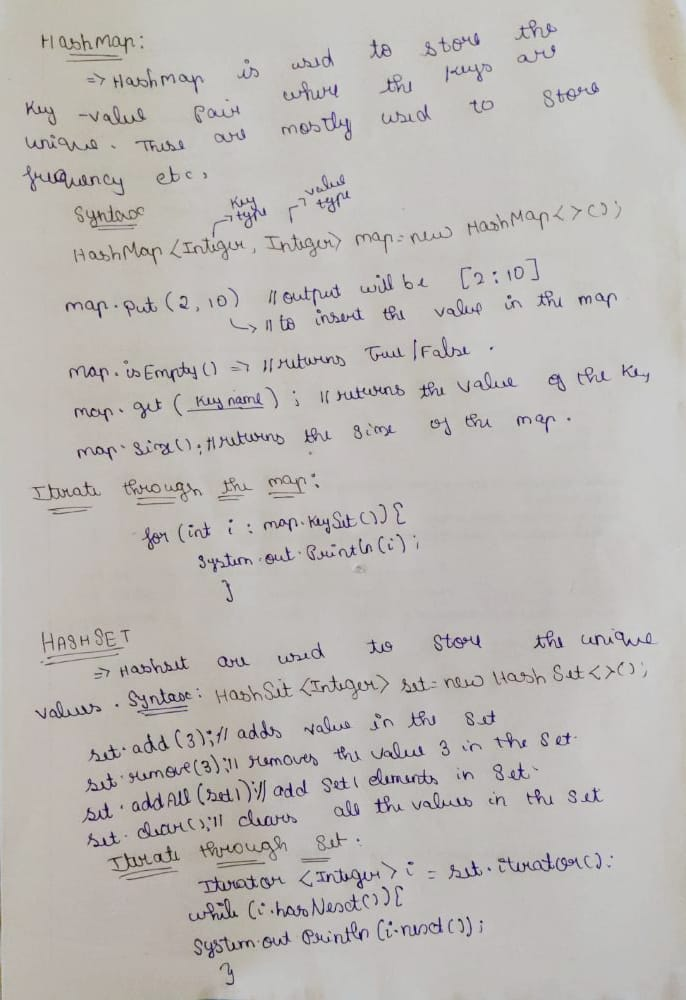 HashMap:
=> Hashmap is used to store the
Key-value Pair where the Keys are
unique. These are mostly used to store
frequency etc,
Syntax
Key type
value type
HashMap <Integer, Integer> map = new HashMap<>();
map.put(2, 10) // output will be [2:10]
↳ // to insert the value in the map
map.isEmpty() => // returns True/False.
map.get(Key name); // returns the value of the Key
map.size(); // returns the size of the map.
Iterate through the map:
for (int i : map.KeySet()){
System.out.Println(i);
}
HASHSET
=> Hashset are used to store the unique
values. Syntax: HashSet <Integer> set = new HashSet<>();
set.add(3); // adds value in the set
set.remove(3); // removes the value 3 in the set.
set.addAll(set1) // add set1 elements in set.
set.clear(); // clears all the values in the set
Iterate through Set:
Iterator <Integer> i = set.iterator();
while (i.hasNext()){
System.out Println(i.next());
}